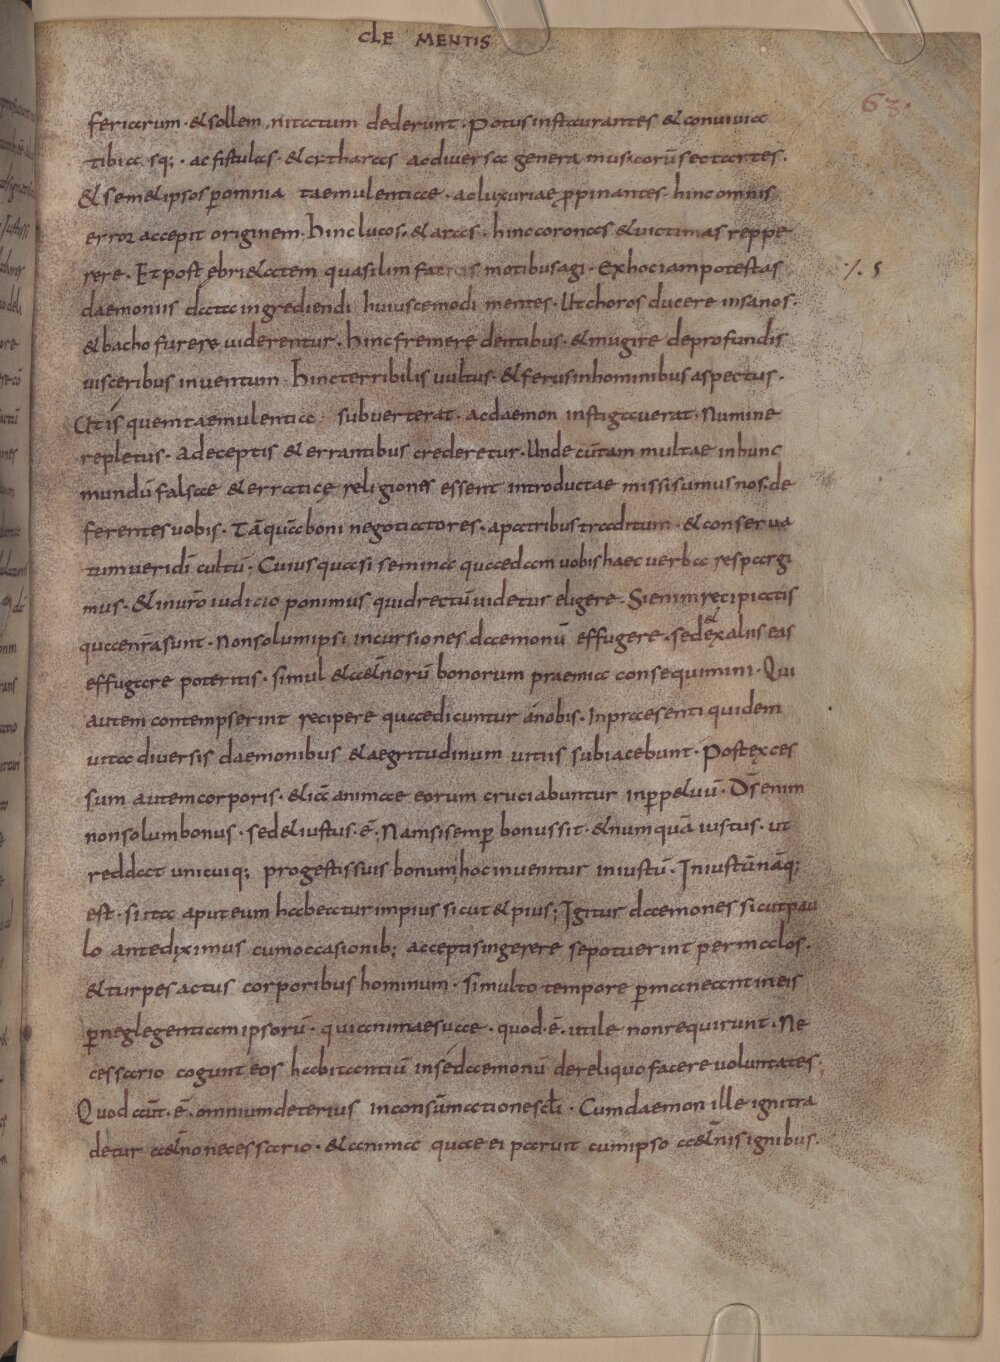 CLE MENTIS
63.
feriarum · & sollemnitatum dederunt · Potus instaurantes & conuiuia
tibia sq; · ac fistulas · & cytharas ac diuersa genera musicorū sectartes ·
& sem& ipsos ꝑomnia taemulentiae · ac luxuriae ꝓpinantes · hinc omnis
error accepit originem · hinc lucos · & aras · hinc coronas & uictimas reppe
rere · Et post ebri&atem quasi limfaticis motibus agi · Ex hoc iam potestas
daemoniis data ingrediendi huiuscemodi mentes · Ut choros ducere insanos ·
& bacho furere uiderentur · hinc fremere dentibus · & mugire de profundis
uisceribus inuentum · hinc terribilis uultus · & ferus in hominibus aspectus ·
Ut is quem taemulentia subuerterat · ac daemon instigauerat · Numine
repletus · A deceptis & errantibus crederetur · Unde cū tam multae in hunc
mundū falsae & erraticę religiones essent introductae missi sumus nos · de
ferentes uobis · Tā quā boni negotiatores · a patribus traditum · & conserua
tum ueri dī cultū · Cuius quasi semina quaedam uobis haec uerba respargi
mus · & in uro iudicio ponimus quid rectū uidetur eligere · Si enim recipiatis
quae nr̄a sunt · Non solum ipsi incursiones daemonū effugere · sed & ex aliis eas
effugare poteritis · simul & aet̄norū bonorum praemia consequimini · Qui
autem contempserint recipere quae dicuntur a nobis · In praesenti quidem
uita diuersis daemonibus & aegritudinum uitiis subiacebunt · Post exces
sum autem corporis · & iā animae eorum cruciabuntur in ꝑp&uū · Ds̄ enim
non solum bonus · sed & iustus · ē · Nam si semꝑ bonus sit · & numquā iustus · ut
reddat unicuiq; pro gestis suis bonum hoc inuenitur iniustū · Iniustū nāq;
est · si ita aput eum habeatur impius sicut & pius; Igitur daemones sicut pau
lo ante diximus cum occasionib; acceptis ingerere se potuerint per malos ·
& turpes actus corporibus hominum · si multo tempore ꝑmaneant in eis
ꝑ neglegentiam ipsorū · qui animae suae · quod · ē · utile non requirunt · Ne
cessario cogunt eos habitantiū in se daemonū de reliquo facere uoluntates
Quod aūt · ē · omnium deterius in consūmatione scl̄i · Cum daemon ille igni tra
detur aet̄no necessario · & anima quae ei paruit cum ipso aet̄nis ignibus ·